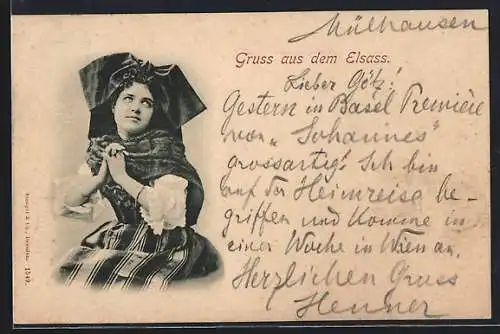 Mülhausen
Gruss aus dem Elsass.
Lieber Götz!
Gestern in Basel Première
von „Johannes"
grossartig! Ich bin
auf der Heimreise be-
griffen und komme in
einer Woche in Wien an.
Herzlichen Gruss
Henner